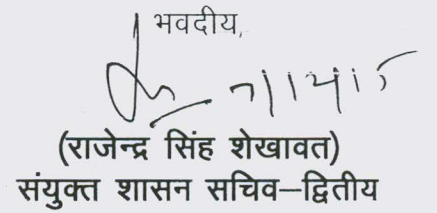 भवदीय,
(राजेन्द्र सिंह शेखावत)
संयुक्त शासन सचिव–द्वितीय